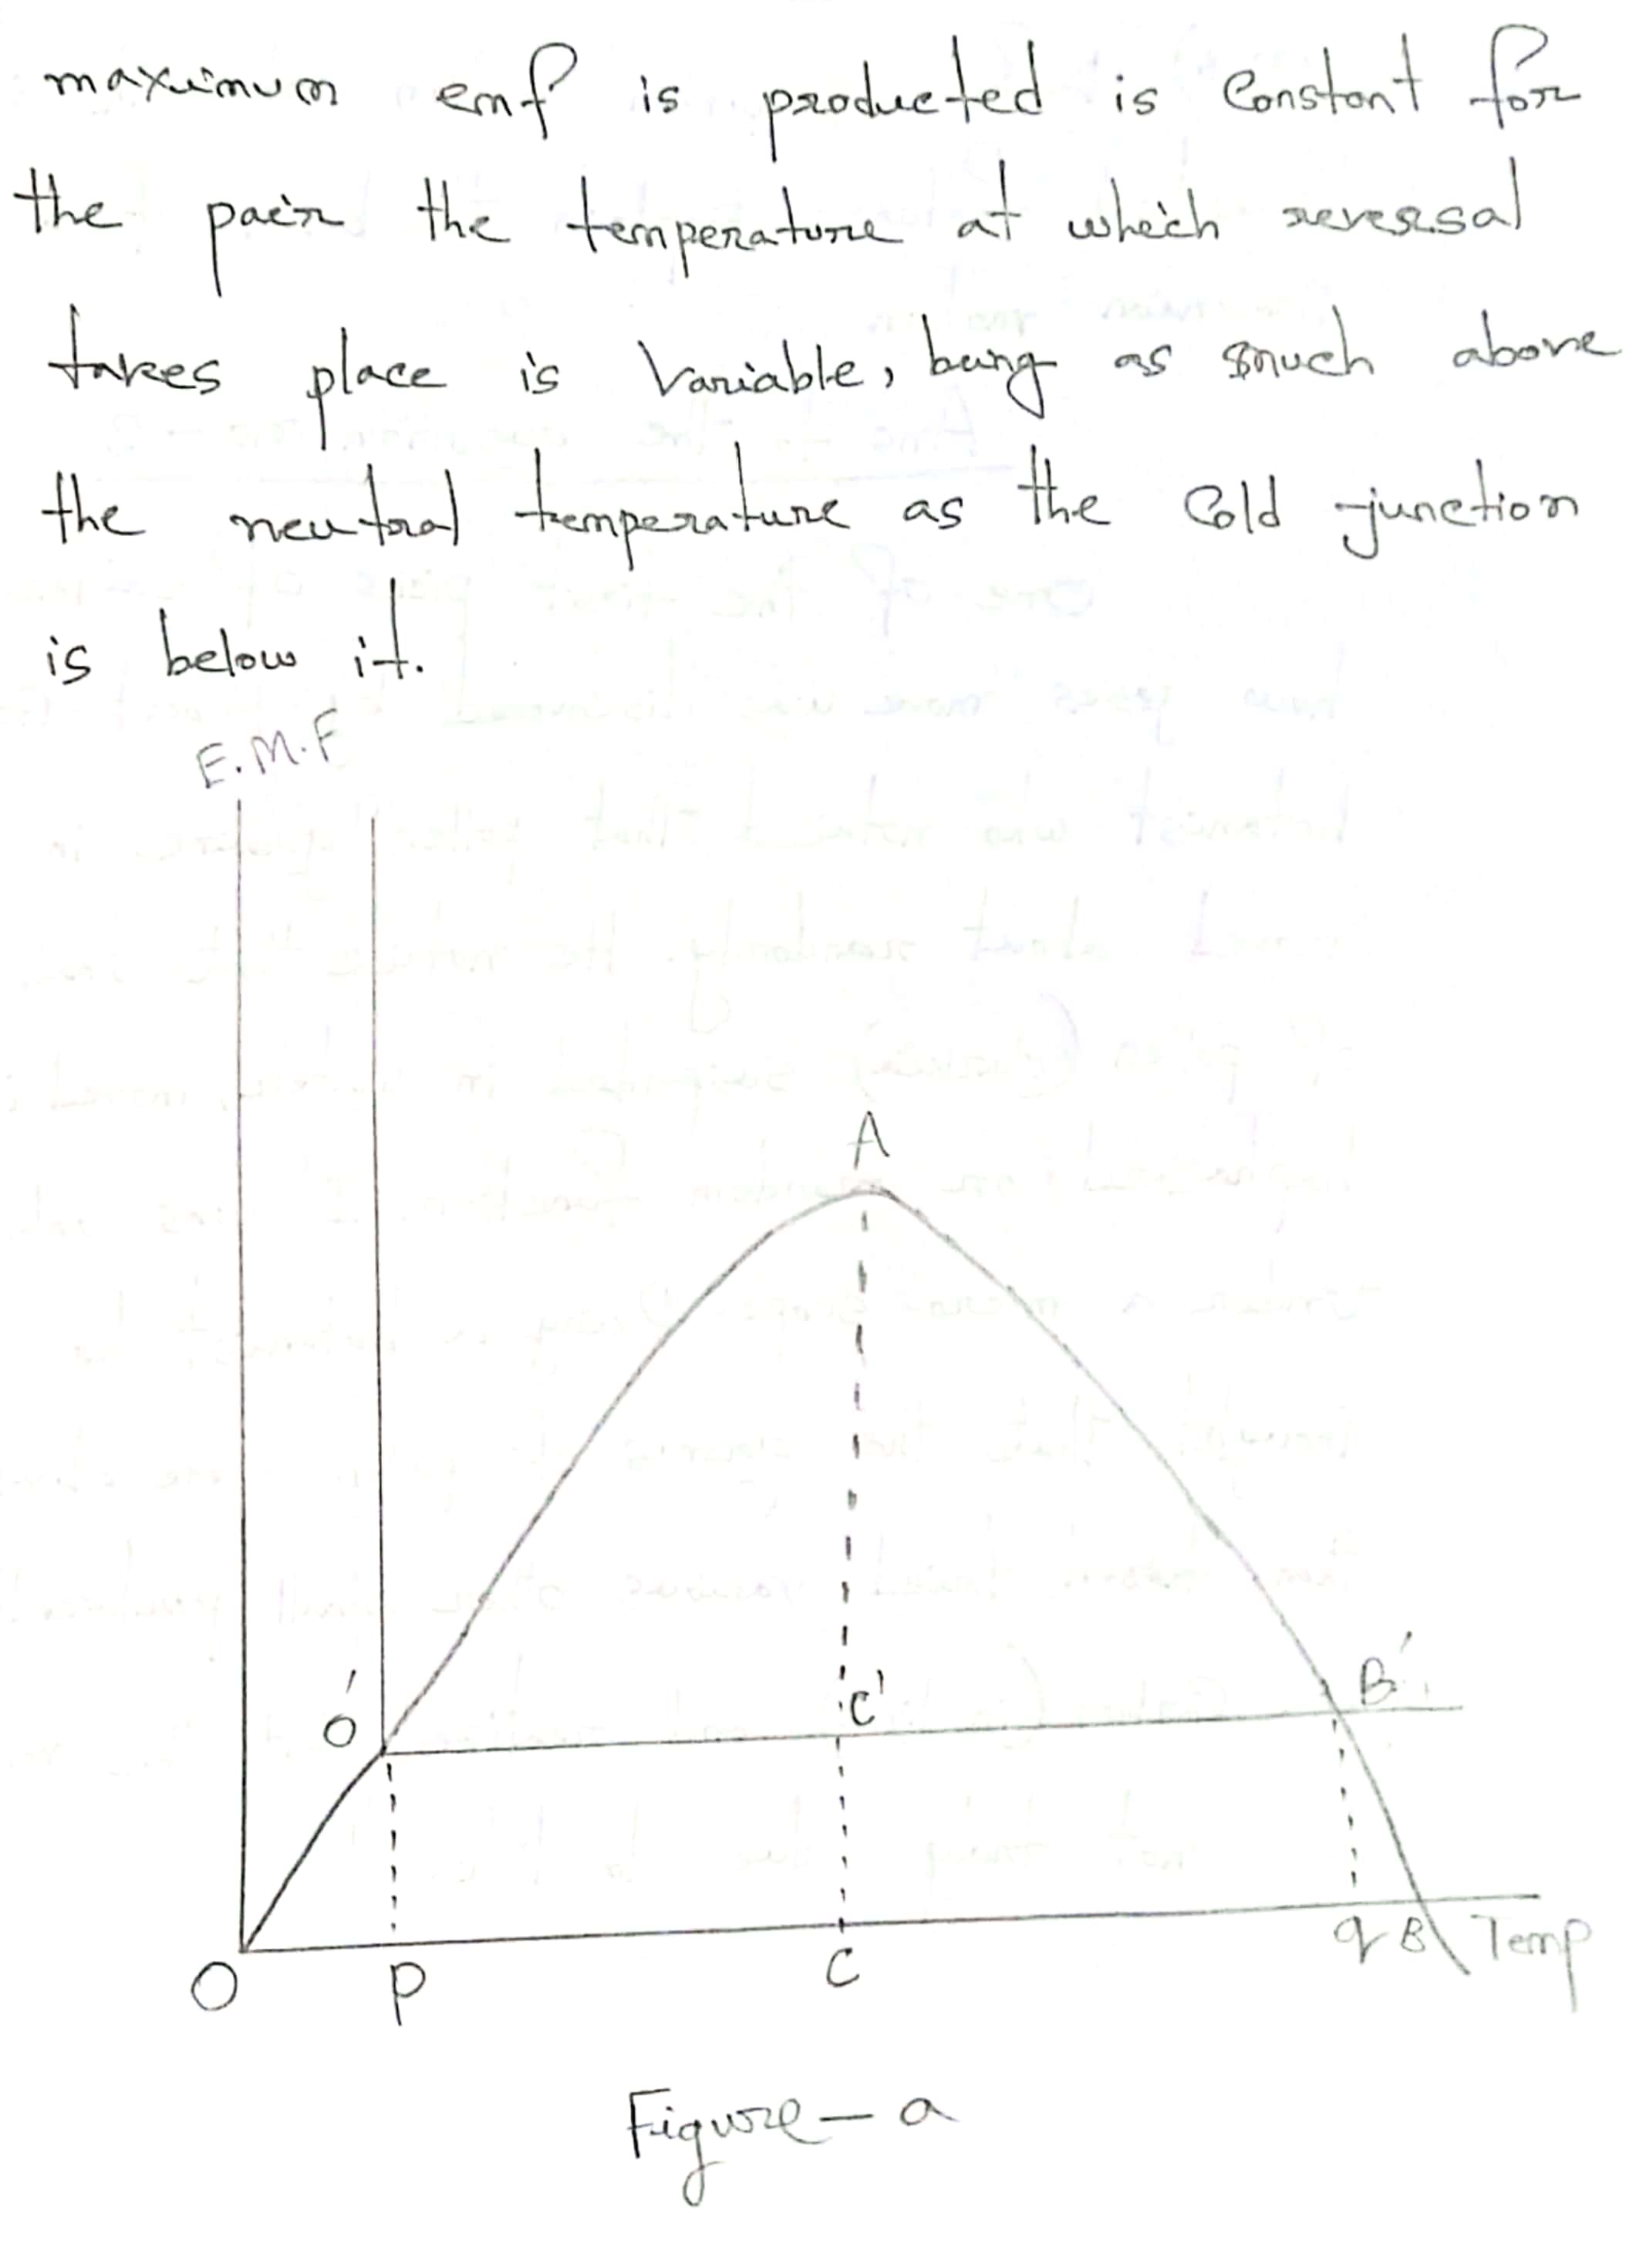 maximum emf is producted is Constant for
the pair the temperature at which reversal
takes place is Variable, being as much above
the neutral temperature as the Cold junction
is below it.
E.M.F
A
O'
C'
B'
O
P
C
q
B
Temp
Figure - a